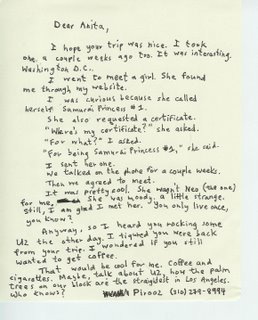 Dear Anita,
I hope your trip was nice. I took
one a couple weeks ago too. It was interesting.
Washington D.C..
I went to meet a girl. She found
me through my website.
I was curious because she called
herself Samurai Princess #1.
She also requested a certificate.
"Where's my certificate?" she asked.
"For what?" I asked.
"For being Samurai Princess #1," she said.
I sent her one.
We talked on the phone for a couple weeks.
Then we agreed to meet.
It was pretty cool. She wasn't Neo (the one)
for me, She was moody, a little strange.
Still, I am glad I met her. "You only live once,
you know?
Anyway, so I heard you rocking some
U2 the other day. I figured you were back
from your trip. I wondered if you still
wanted to get coffee.
That would be cool for me. Coffee and
cigarettes. Maybe, talk about U2, how the palm
trees on our block are the straightest in Los Angeles.
Who knows?
Pirooz (310)